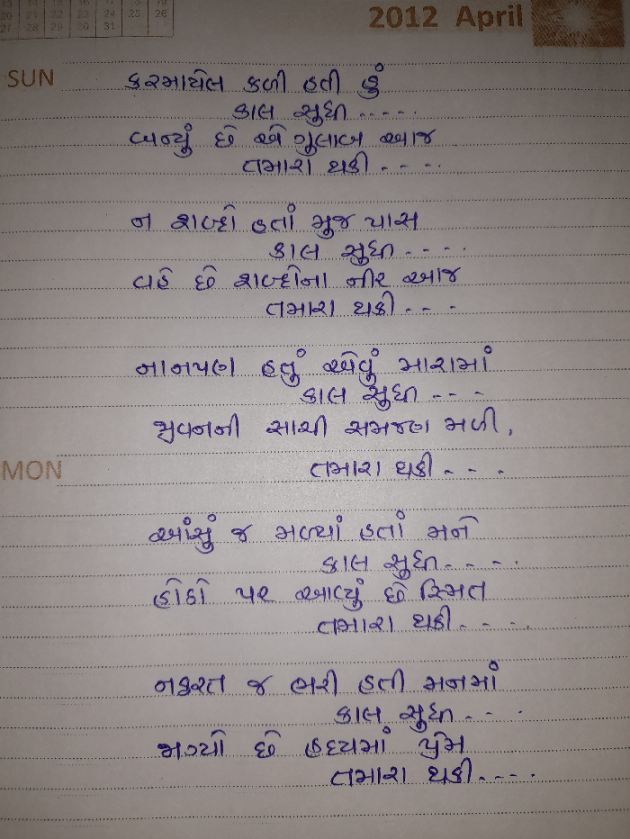 2012 April
20 21 22 23 24 25 26
27 28 29 30 31
SUN
કરમાયેલ કળી હતી હું
કાલ સુધી.....
બન્યું છે એ ગુલાબ આજ
તમારા થકી....
ન શબ્દો હતાં મુજ પાસ
કાલ સુધી....
વહે છે શબ્દોના નીર આજ
તમારા થકી...
નાનપણ હતું એવું મારામાં
કાલ સુધી...
જીવનની સાચી સમજણ મળી,
MON
તમારા થકી...
આંસું જ મળ્યાં હતાં મને
કાલ સુધી....
હોઠો પર આવ્યું છે સ્મિત
તમારા થકી....
નફરત જ ભરી હતી મનમાં
કાલ સુધી...
જાગ્યો છે હૃદયમાં પ્રેમ
તમારા થકી....